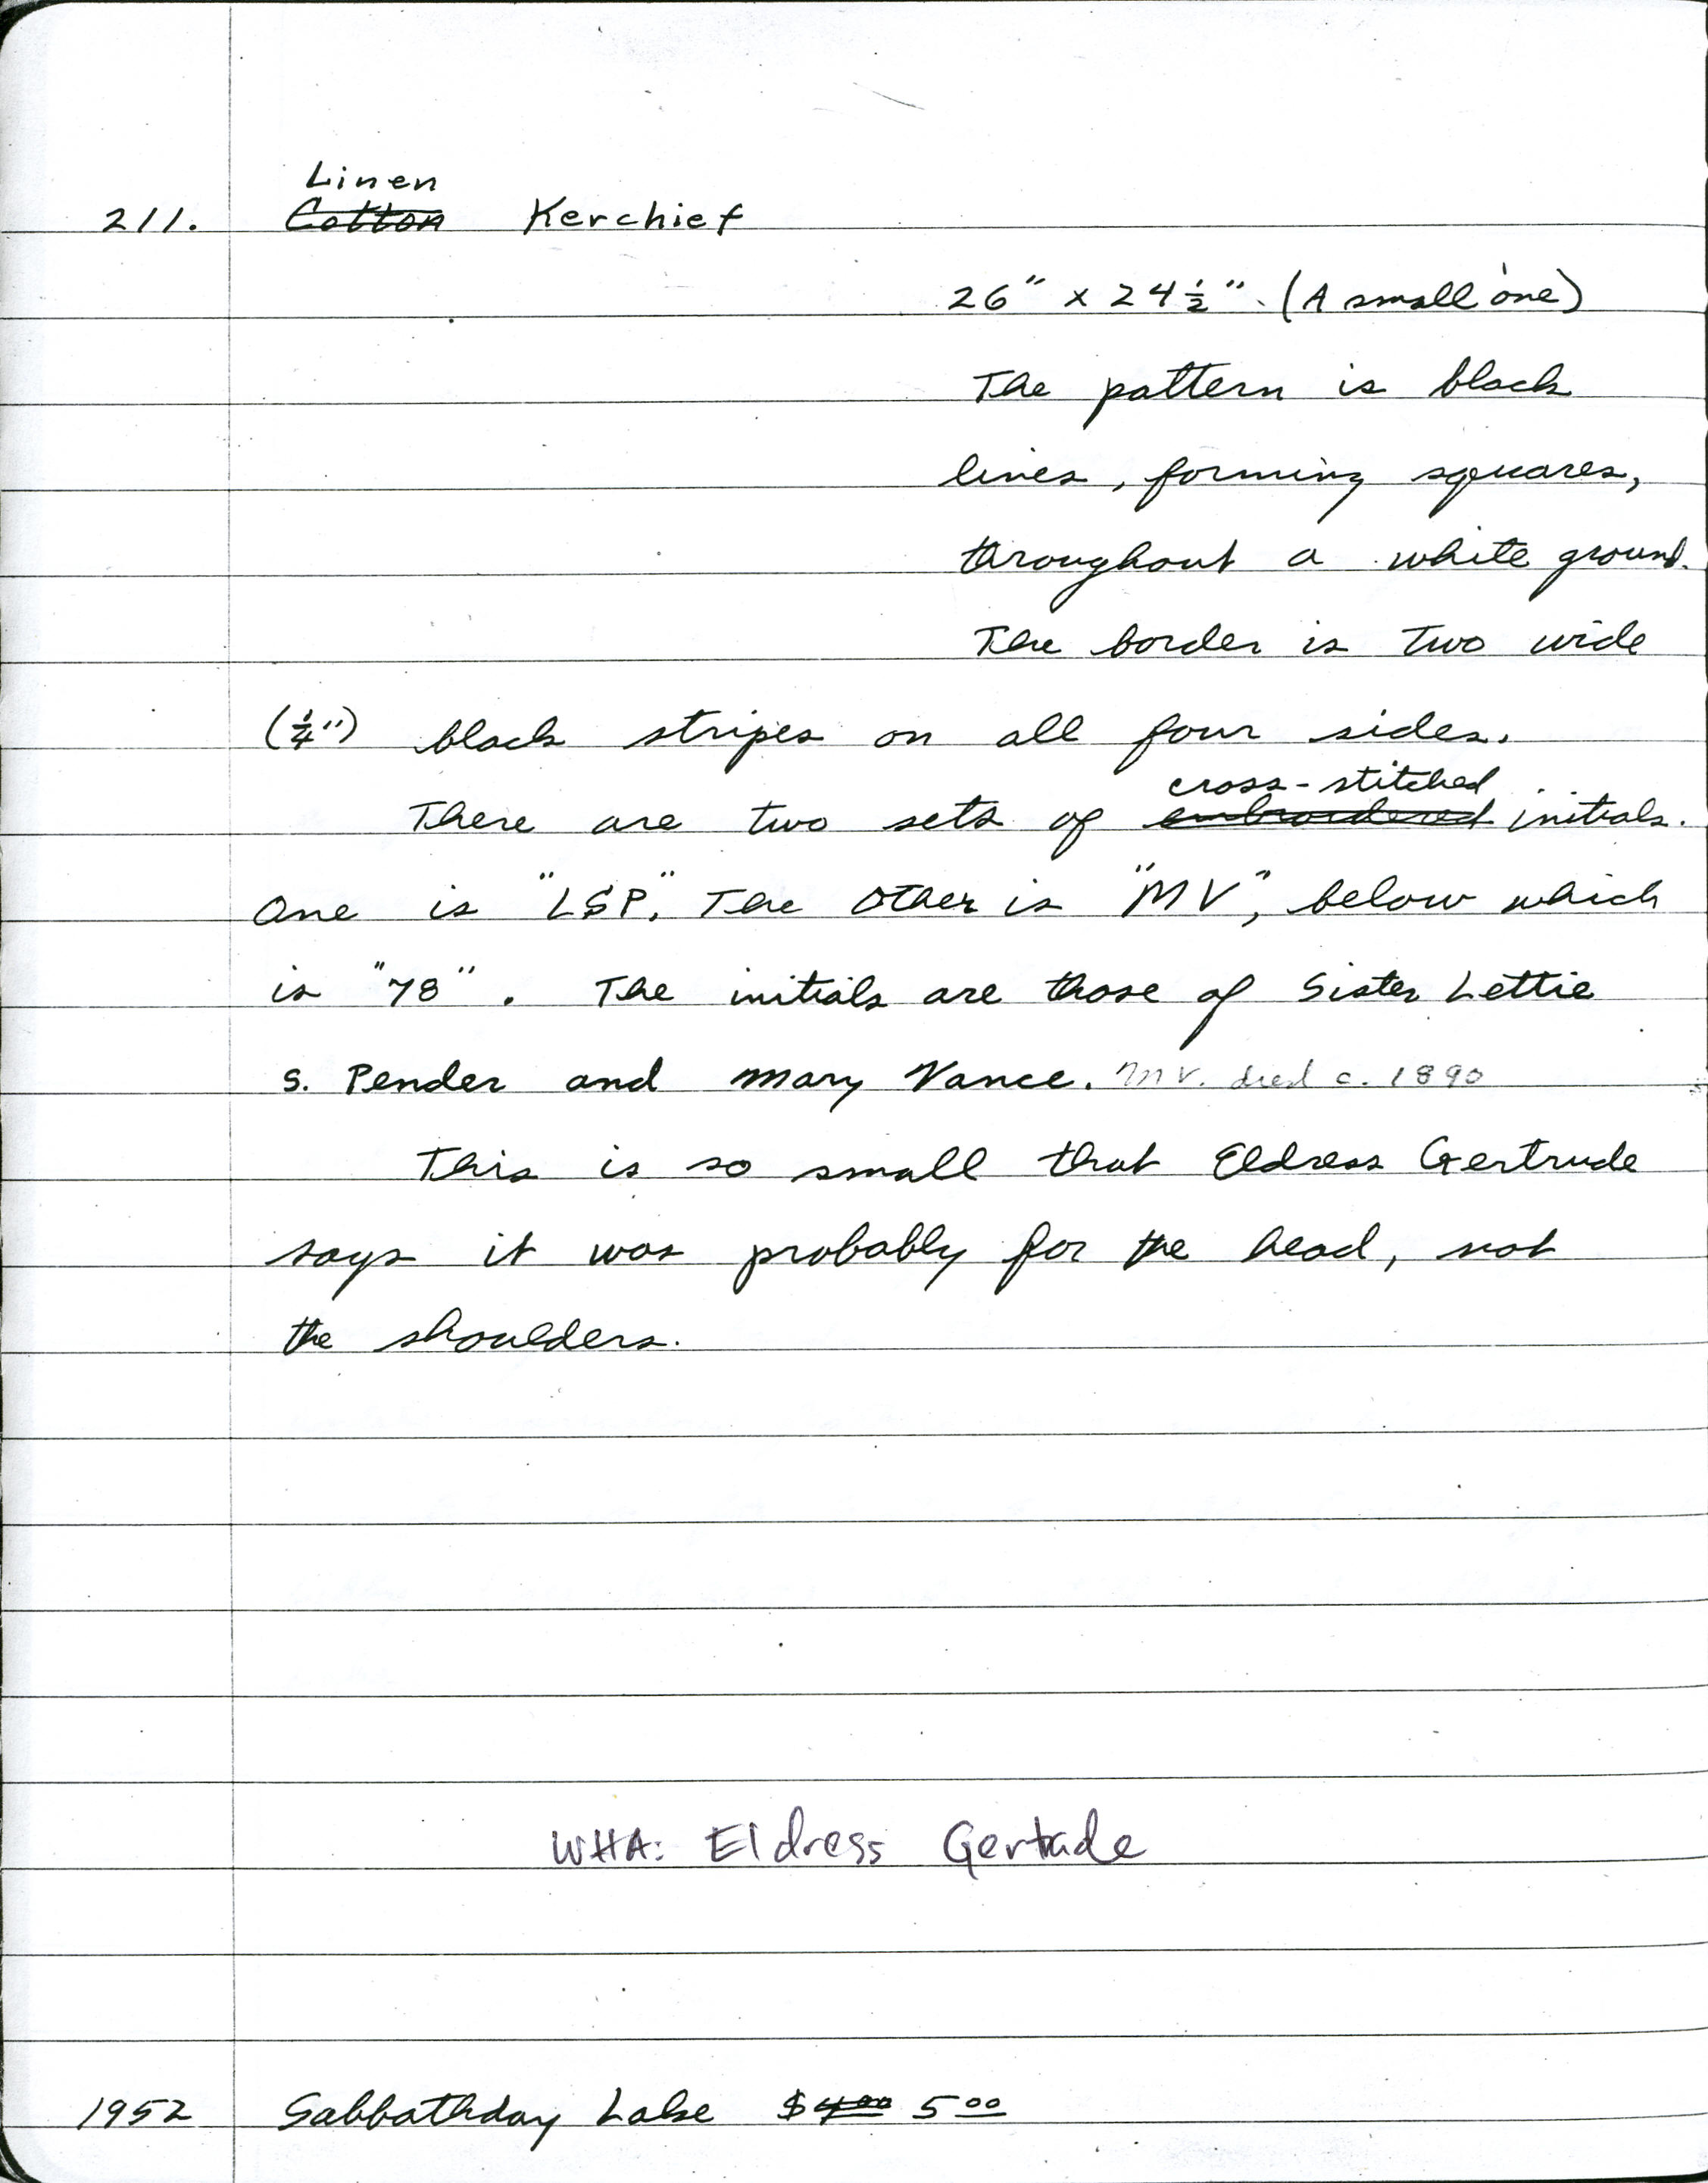 Linen
211. Cotton Kerchief
26" x 24 1/2". (A small one)
The pattern is black
lines, forming squares,
throughout a white ground.
The border is two wide
(1/4") black stripes on all four sides.
cross-stitched
There are two sets of embroidered initials.
One is "LSP." The other is "MV", below which
is "78". The initials are those of Sister Lettie
S. Pender and Mary Vance. MV. died c. 1890
This is so small that Eldress Gertrude
says it was probably for the head, not
the shoulders.
WHA: Eldress Gertrude
1952 Sabbathday Lake $4.00 5.00